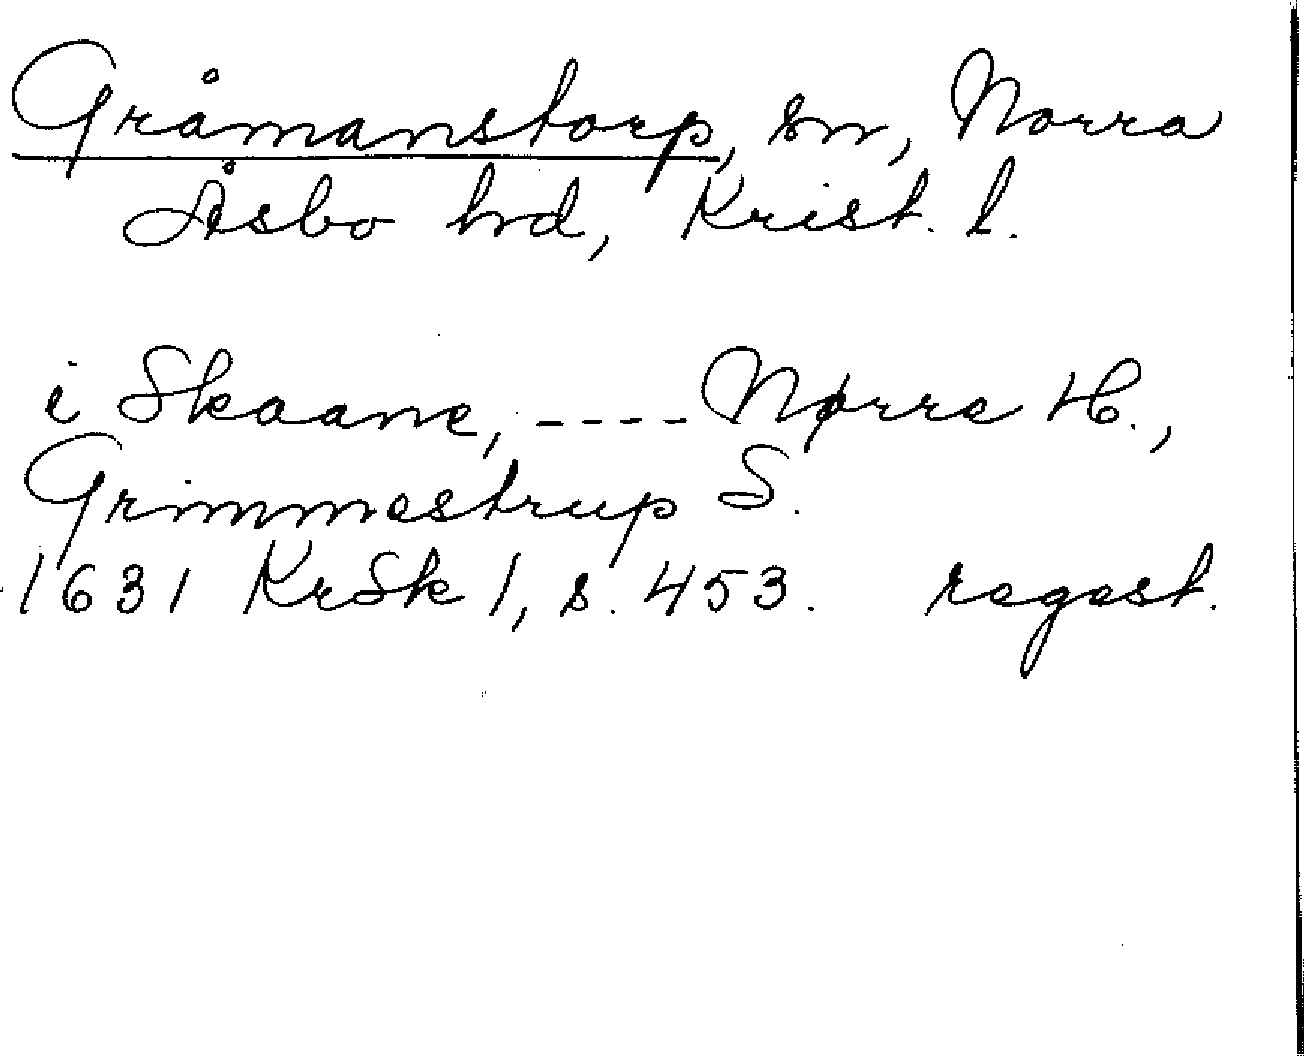 Gråmanstorp, sn, Norra
Åsbo hrd, Krist. l.
i Skaane, ---- Nørre H.,
Grimmestrup S.
1631 KrSk 1, s. 453. regest.